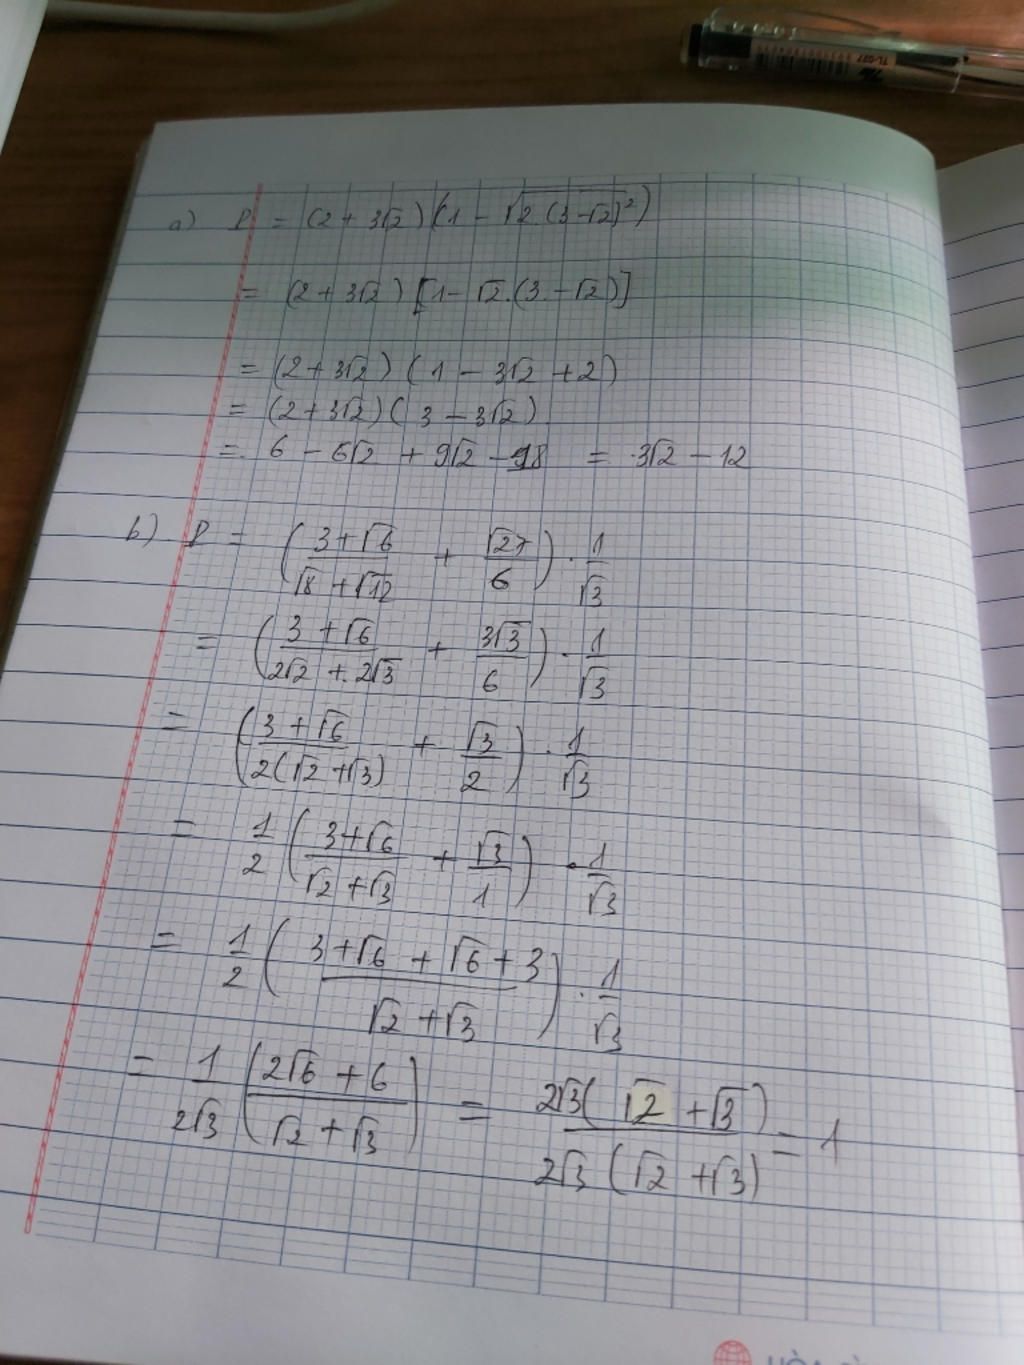 TL-027
a) P = (2 + 3√2)(1 - √2.(3-√2)²)
= (2 + 3√2)[1 - √2.(3 - √2)]
= (2 + 3√2)(1 - 3√2 + 2)
= (2 + 3√2)(3 - 3√2)
= 6 - 6√2 + 9√2 - 18 = 3√2 - 12
b) P = ((3+√6)/(√8+√12) + √27/6) . 1/√3
= ((3+√6)/(2√2+2√3) + 3√3/6) . 1/√3
= ((3+√6)/(2(√2+√3)) + √3/2) . 1/√3
= 1/2 ((3+√6)/(√2+√3) + √3/1) . 1/√3
= 1/2 ((3+√6+√6+3)/(√2+√3)) . 1/√3
= 1/(2√3) ((2√6+6)/(√2+√3)) = 2√3(√2+√3)/(2√3(√2+√3)) = 1